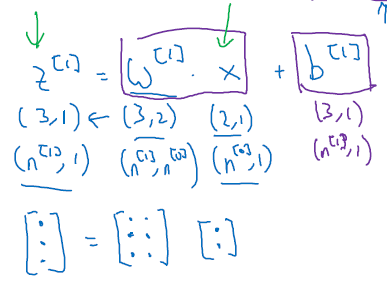 z^[1] = W^[1] · x + b^[1]
(3,1) ← (3,2) (2,1) (3,1)
(n^[1],1) (n^[1],n^[0]) (n^[0],1) (n^[1],1)
[⋮] = [: : :] [:]